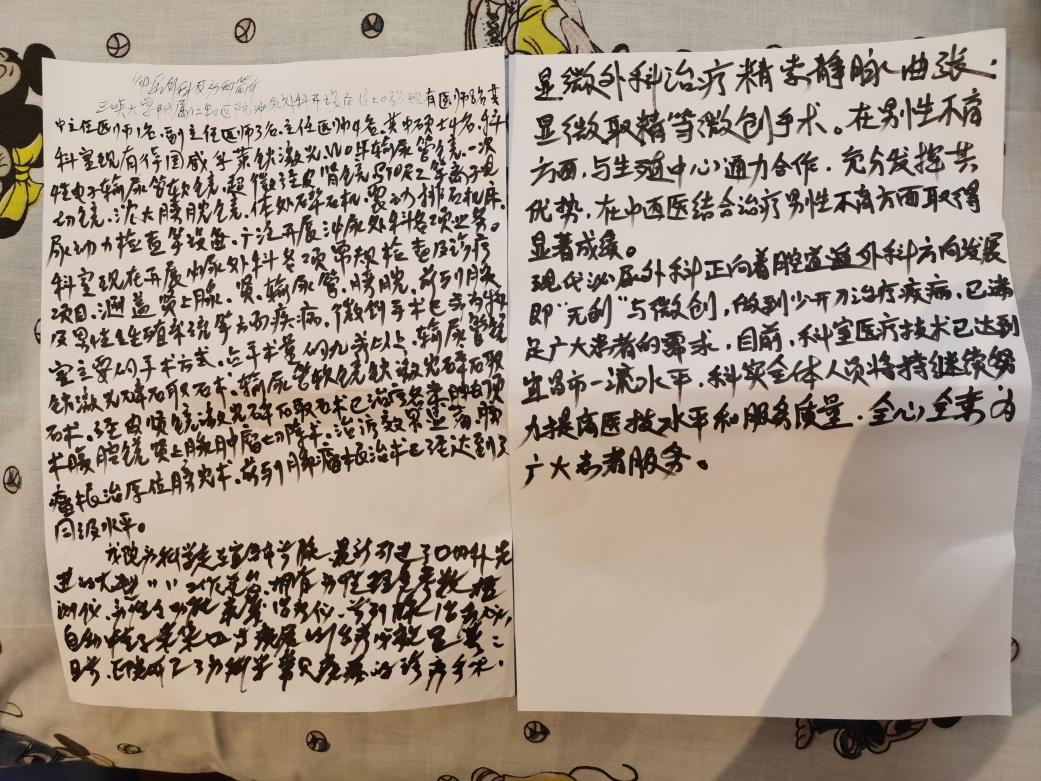 泌尿外科及男科简介
三峡大学附属仁和医院泌尿外科开设床位20张现有医师8名其
中主任医师1名.副主任医师3名.主任医师4名.其中硕士4名.科
科室现有德国威孚莱钬激光.W0牛输尿管镜.一次
性电子输尿管软镜.超微经皮肾镜 等离子电
切镜.沈大膀胱镜.体外碎石机.震动排石机床.
尿动力检查等设备.广泛开展泌尿外科各项业务。
科室现在开展泌尿外科各项常规检查及诊疗
项目.涵盖肾上腺.肾.输尿管.膀胱.前列腺
及男性生殖系统等方面疾病.微创手术已成为科
室主要的手术方式.占手术量的九成以上.输尿管镜
钬激光碎石取石术.输尿管软镜钬激光碎石取
石术.经皮肾镜激光碎石取石术已治疗
术腹腔镜肾上腺肿瘤切除术.治疗效果显著.膀
癌根治原位膀胱术.前列腺癌根治术已经达到了
同级水平。
我院男科学 最新引进了国内外先
进的大型 工作平台.拥有男性
测仪.男性
自动
目前.已开展了男科学常见疾病的诊疗手术.
显微外科治疗精索静脉曲张.
显微取精等微创手术。在男性不育
方面,与生殖中心通力合作,充分发挥其
优势,在中西医结合治疗男性不育方面取得
显著成绩。
现代泌尿外科正向着腔道道外科方向发展
即“无创”与微创,做到少开刀治疗疾病,已满
足广大患者的要求,目前,科室医疗技术已达到
宜昌市一流水平,科实全体人员将持继续努
力提高医技水平和服务质量.全心全意为
广大患者服务。